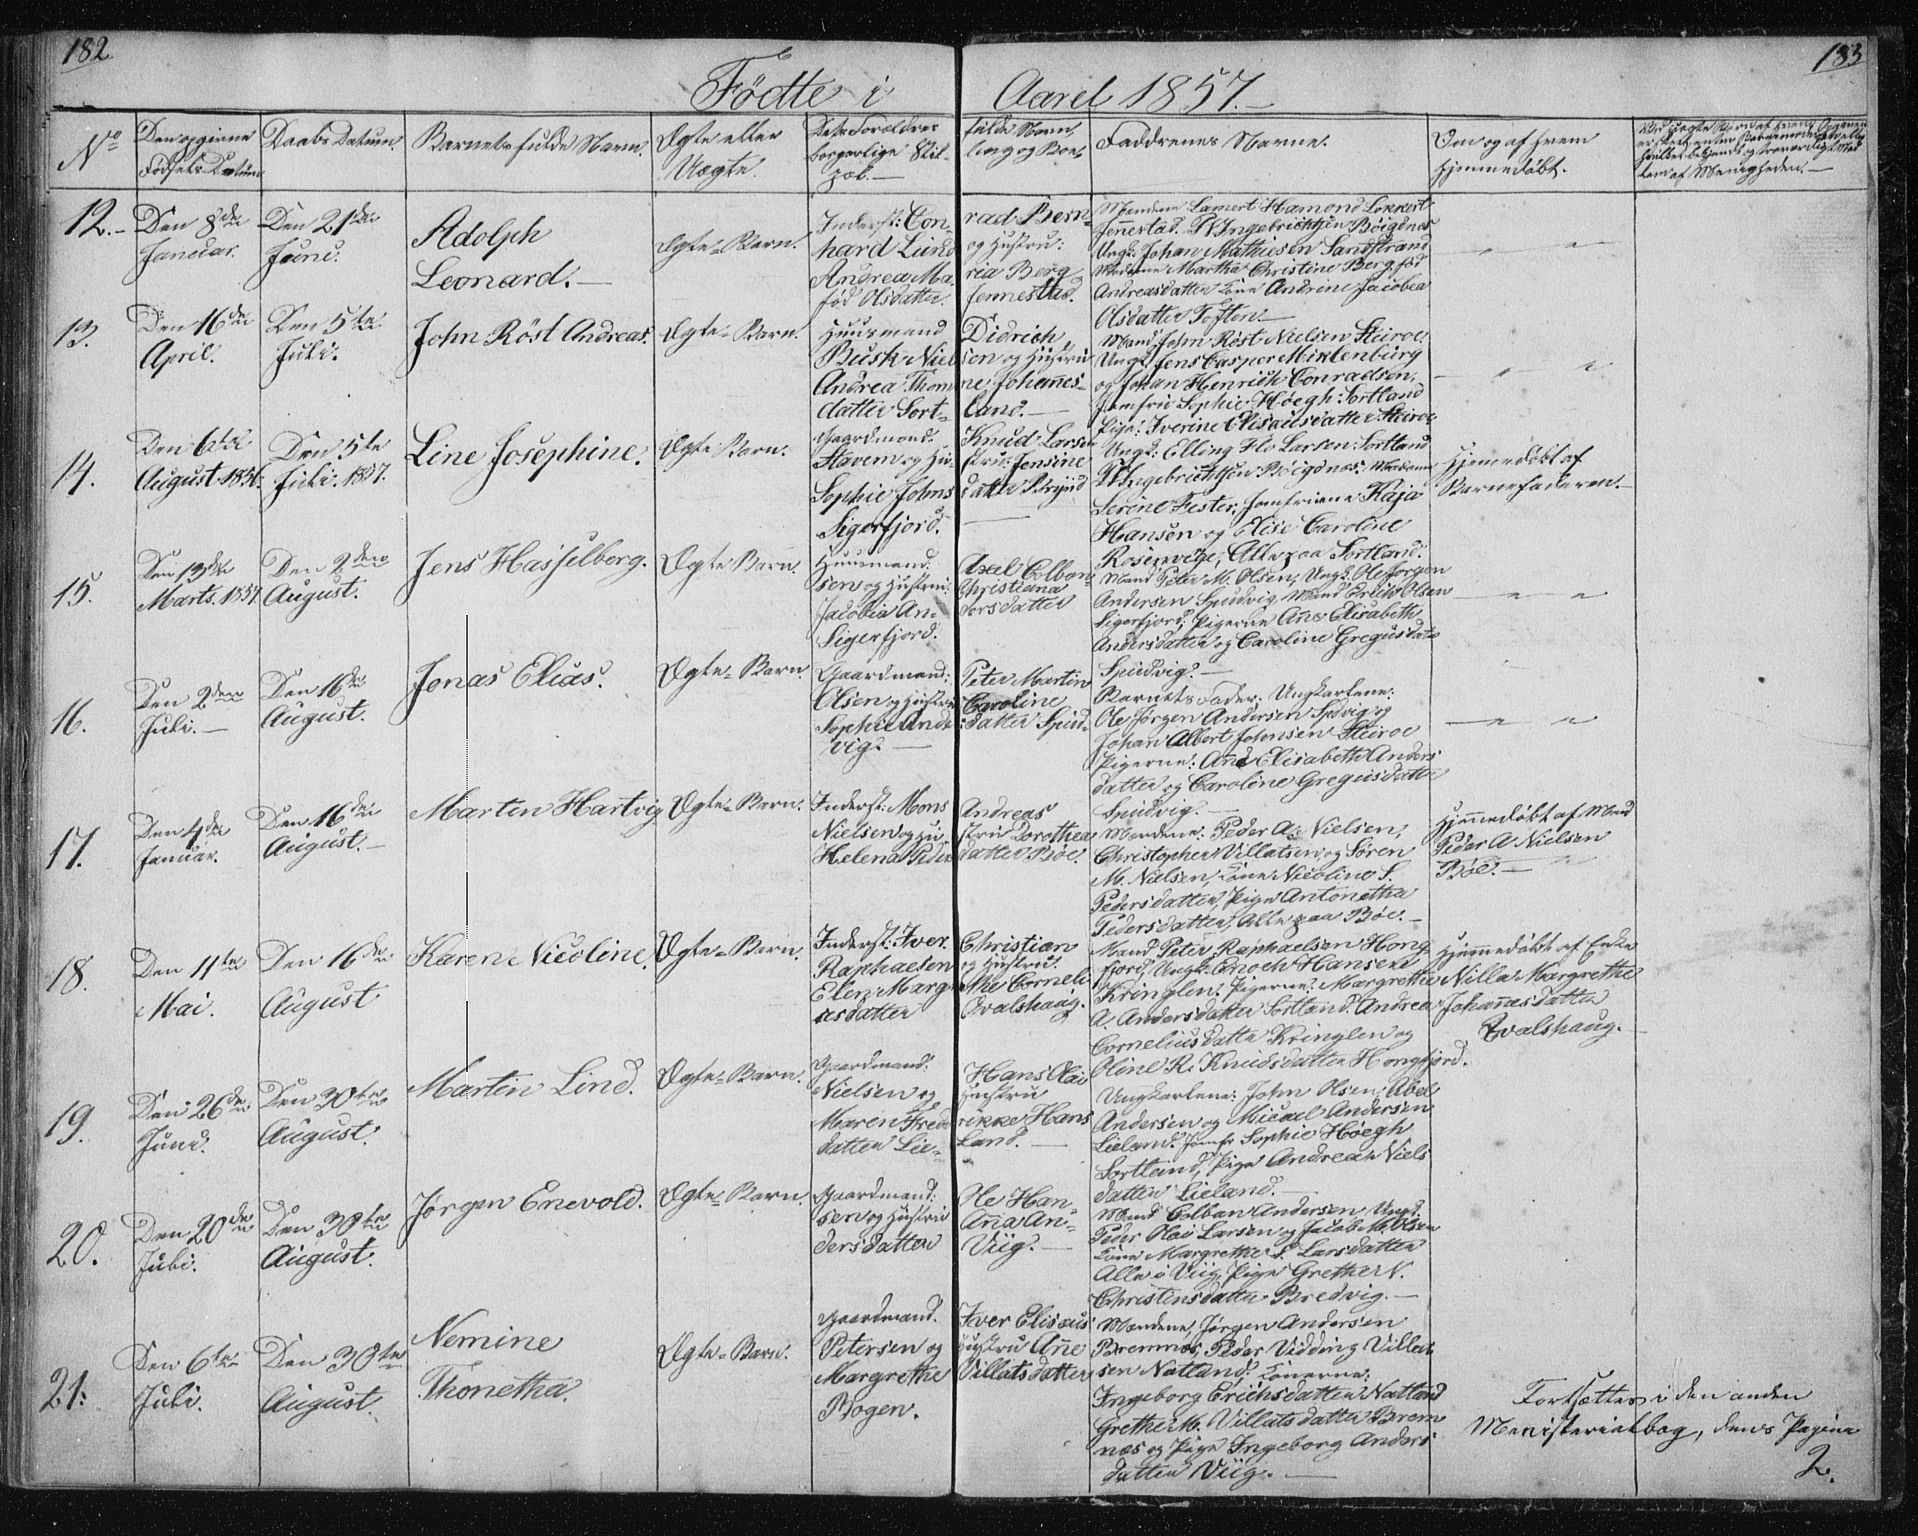 182
183
Födte i Aaret 1857.
No
Den opgivne
Födsels Datum
Daabs Datum.
Barnets fulde Navn.
Ægte eller
Uægte.
Dets Forældres fulde Navn,
borgerlige Stil-ling og Boe-
pæl.
Faddernes Navne.
Om og af hvem
hjemmedöbt.
12.
Den 8de
Januar.
Den 21de
Juni.
Adolph
Leonard.
Ægte-Barn.
Inderst: Conrad Bern-
hard Lund og Hustru:
Andrea Maria Berg
föd Olsdatter Jennestad.
Mændene Lamert Hamond Lokkert
Jennestad. P. Ingebrichtsen Böigdnes
Ungk: Johan Mathiesen Sandstrand
Madame Martha Christine Berg, föd
Andreasdatter Kone Andrine Jacobea
Olsdatter Toften.
13.
Den 16de
April.
Den 5te
Juli.
John Röst Andreas.
Ægte-Barn.
Huusmand Didrich
Busk Nielsen og Hustru
Andrea Thomine Johannes-
datter Sortland.
Mand John Röst Nielsen Steiroe
Ungk: Jens Casper Miklenburg
og Johan Henrich Conradsen,
Jomfru Sophie Höegh: Sortland
Pige: Iverine Elisausdatter Steiroe
14.
Den 6te
August 1856.
Den 5te
Juli. 1857.
Line Josephine.
Ægte Barn.
Gaardmand. Knud Larsen
Stavem og Hustru: Jensine
Sophie Johnsdatter
Sigerfjord.
Ungk: Elling Flo Larsen: Sortland
P. Ingebrichtsen Böigdnes: Madame
Serine Fester. Jomfruerne Kaja
Hansen og Elise Caroline
Rosenvige, Alle paa Sortland.
Hjemmedöbt af
Barnefaderen.
15.
Den 13de
Marts. 1857.
Den 2den
August.
Jens Hasselberg.
Ægte Barn.
Huusmand. Axel Colban-
sen og Hustru: Christiana
Jacobia Andersdatter
Sigerfjord.
Mand Peter M. Olsen, Ungk: Ole Jorgen
Andersen Spudvig, Mand Erik Olsen
Sigerfjord, Pigerne Ane Elisabeth
Andersdatter og Caroline Gregusdatter
Spudvig.
16.
Den 2den
Juli.
Den 16de
August.
Jonas Elias.
Ægte-Barn.
Gaardmand: Peter Martin
Olsen og Hustru Caroline
Sophie Andersdatter Spud-
vig.
Barnets Fader. Ungkarlene:
Ole Jørgen Andersen Spdvig og
Johan Albert Johnsen Steiroe
Pigerne: Ane Elisabeth Anders
datter og Caroline Gregusdatter
Spudvig.
17.
Den 4de
Januar.
Den 16de
August.
Marten Hartvig
Ægte-Barn.
Inderst: Mons Andreas
Nielsen og Hustru Dorothea
Helena Pedersdatter Böe.
Mændene: Peder A. Nielsen,
Christopher Villatsen og Sören
M. Nielsen, Kone Nicoline S.
Pedersdatter, Pige Antonetha
Pedersdatter, Alle paa Böe.
Hjemmedöbt af Mand
Peder A Nielsen
Böe.
18.
Den 11te
Mai.
Den 16de
August
Karen Nicoline.
Ægte-Barn.
Inderst: Iver Christian
Raphaelsen og Hustru.
Elen Margrethe Corneli-
usdatter Qvalshaug.
Mand Peter Raphaelsen Hong-
fjord, Ungk: Enoch Hansen
Kringlen. Pigerne: Margrethe
A. Andersdatter Sortland. Andrea
Corneliusdatter Kringlen og
Oline R. Knudsdatter Hongfjord.
Hjemmedöbt af Enke
Nilla Margrethe
Johannesdatter
Qvalshaug.
19.
Den 26de
Juni.
Den 30te
August.
Martin Lind.
Ægte-Barn.
Gaardmand. Hans Olai
Nielsen og Hustru
Maren Fredrikke Hans
datter Lieland.
Ungkarlene: John Olsen, Abel
Andersen og Micael Andersen
Lieland. Jomfr Sophie Höegh
Sortland, Pige Andrea Niels
datter Lieland.
20.
Den 20de
Juli.
Den 30te
August.
Jørgen Enevold.
Ægte-Barn.
Gaardmand: Ole Han-
sen og Hustru Ana An-
dersdatter Viig.
Mand Colban Andersen Ungk:
Peder Olai Larsen og Jacob M. Olsen
Kone Margrethe S. Larsdatter
Alle i Viig, Pige Grethe N.
Christensdatter Bredvig.
21.
Den 6te
Juli.
Den 30te
August.
Nemine
Thonetha.
Ægte-Barn.
Gaardmand. Iver Elisæus
Petersen og Hustru Ane
Margrethe Villatsdatter
Bogen.
Mændene, Jørgen Andersen
Bremnes, Peder Vidding Villat
sen Natland, Konerne:
Ingeborg Erichsdatter Natland
Grethe M. Villatsdatter Brem
næs og Pige Ingeborg Anders
datter Viig.
Fortsættes i den anden
Ministerialbog, dens Pagina
2.